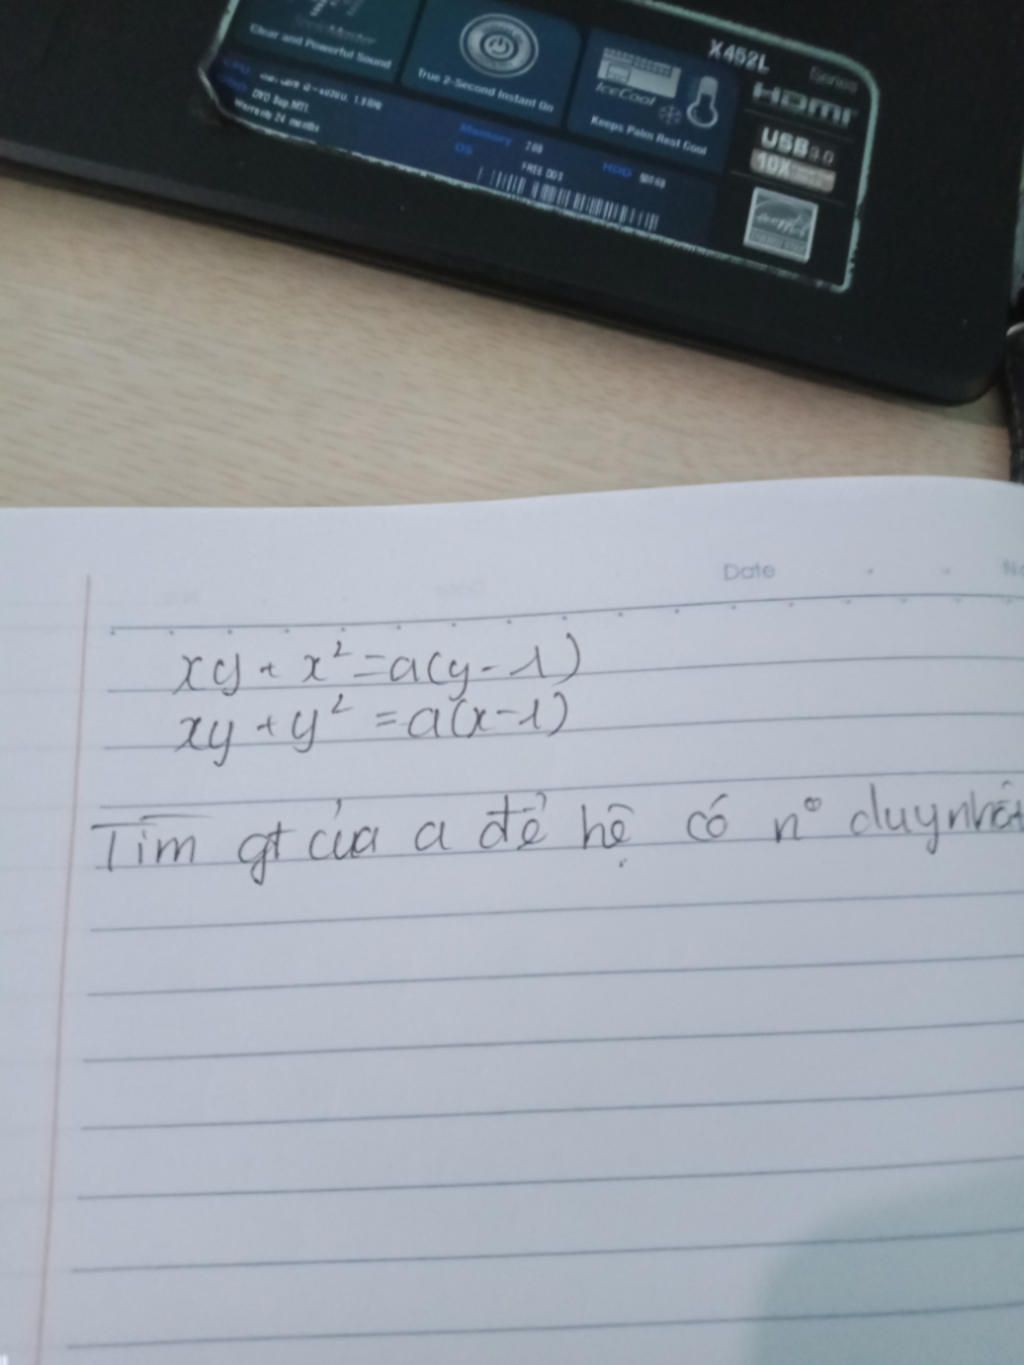 X452L Series
Clear and Powerful Sound
True 2-Second Instant On
IceCool
Keeps Palm Rest Cool
HDMI
USB3.0
10X
CPU
Memory 2GB
OS FREE DOS
HDD 500GB
Warranty 24 months
Date
xy + x² = a(y - 1)
xy + y² = a(x - 1)
Tìm gt của a để hệ có n° duy nhất